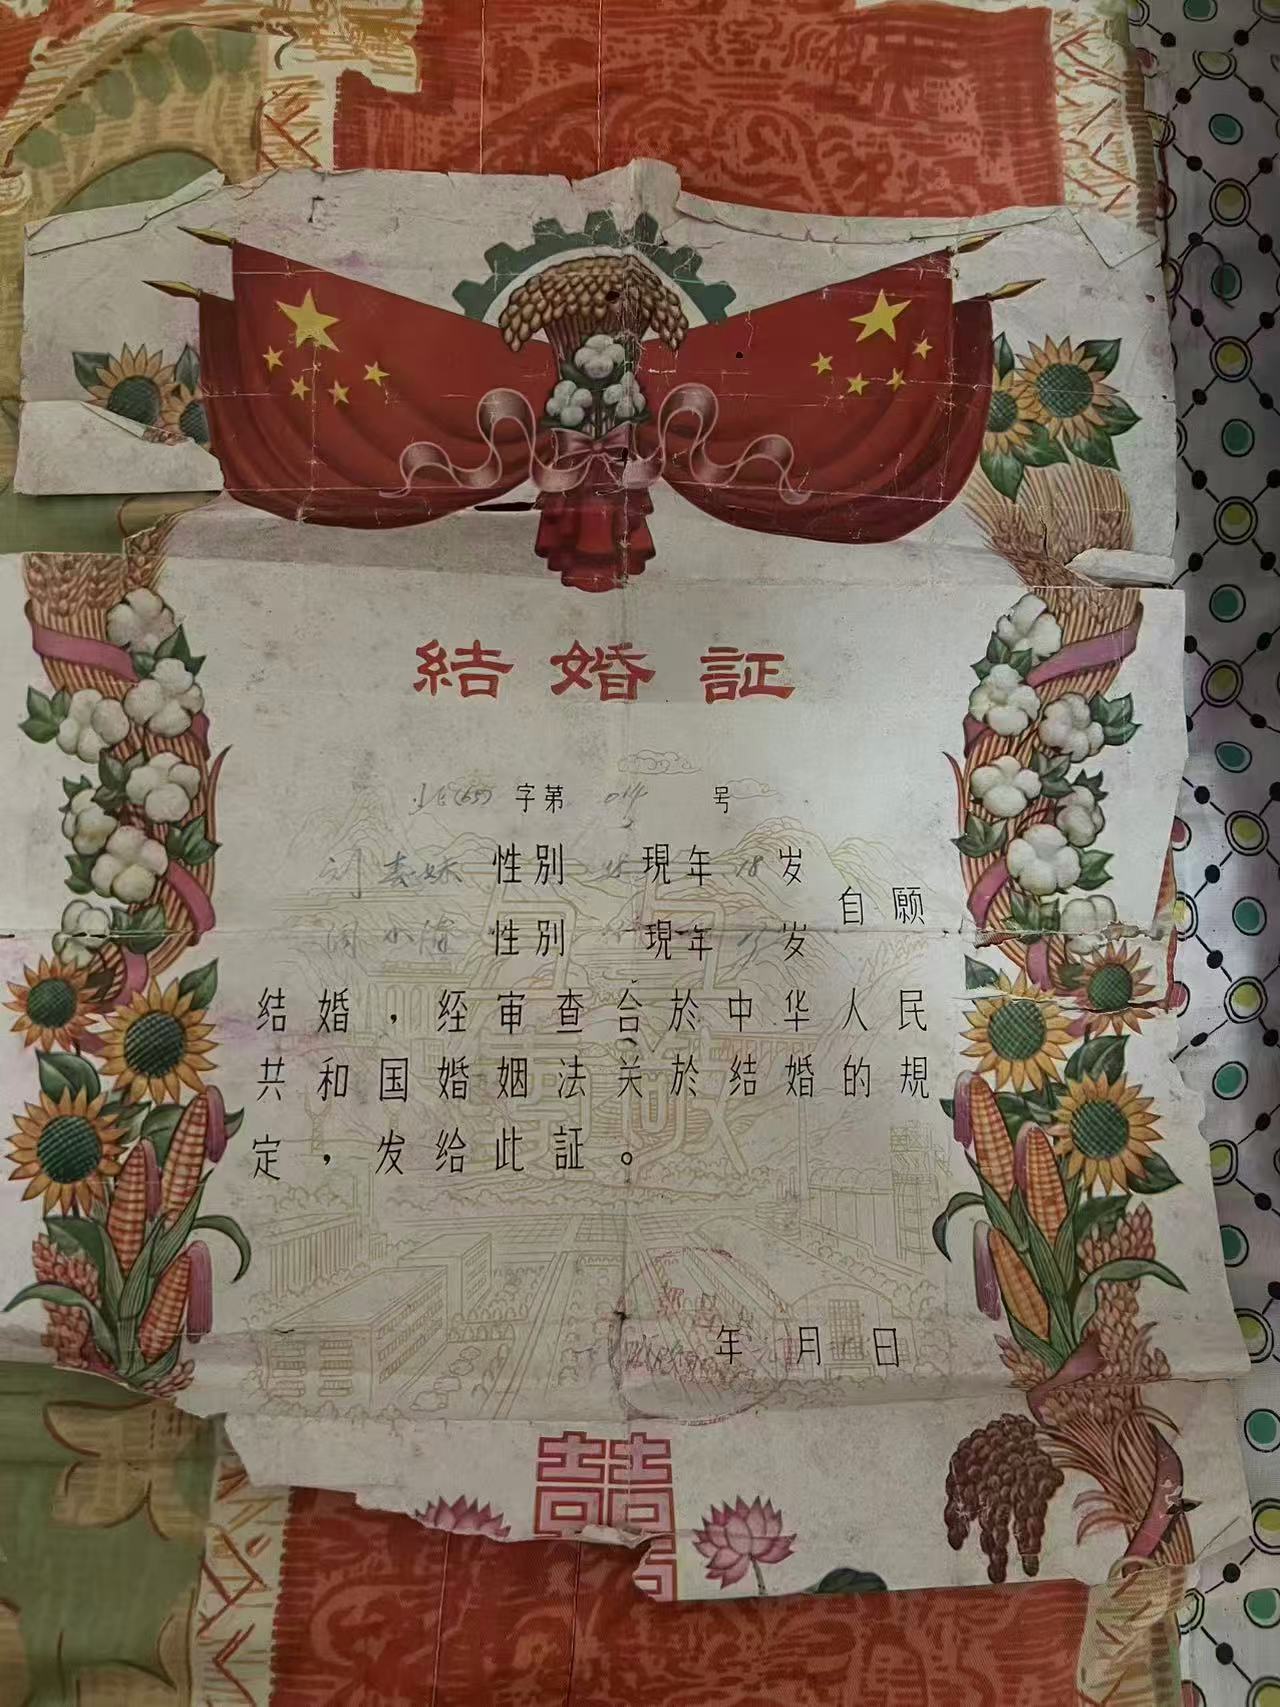 結婚証
(65) 字第 014 号
刘春妹 性別 現年 18 岁
性別 現年 岁
自願
结婚，经审查合於中华人民
共和国婚姻法关於结婚的規
定，发给此証。
年 月 日
囍